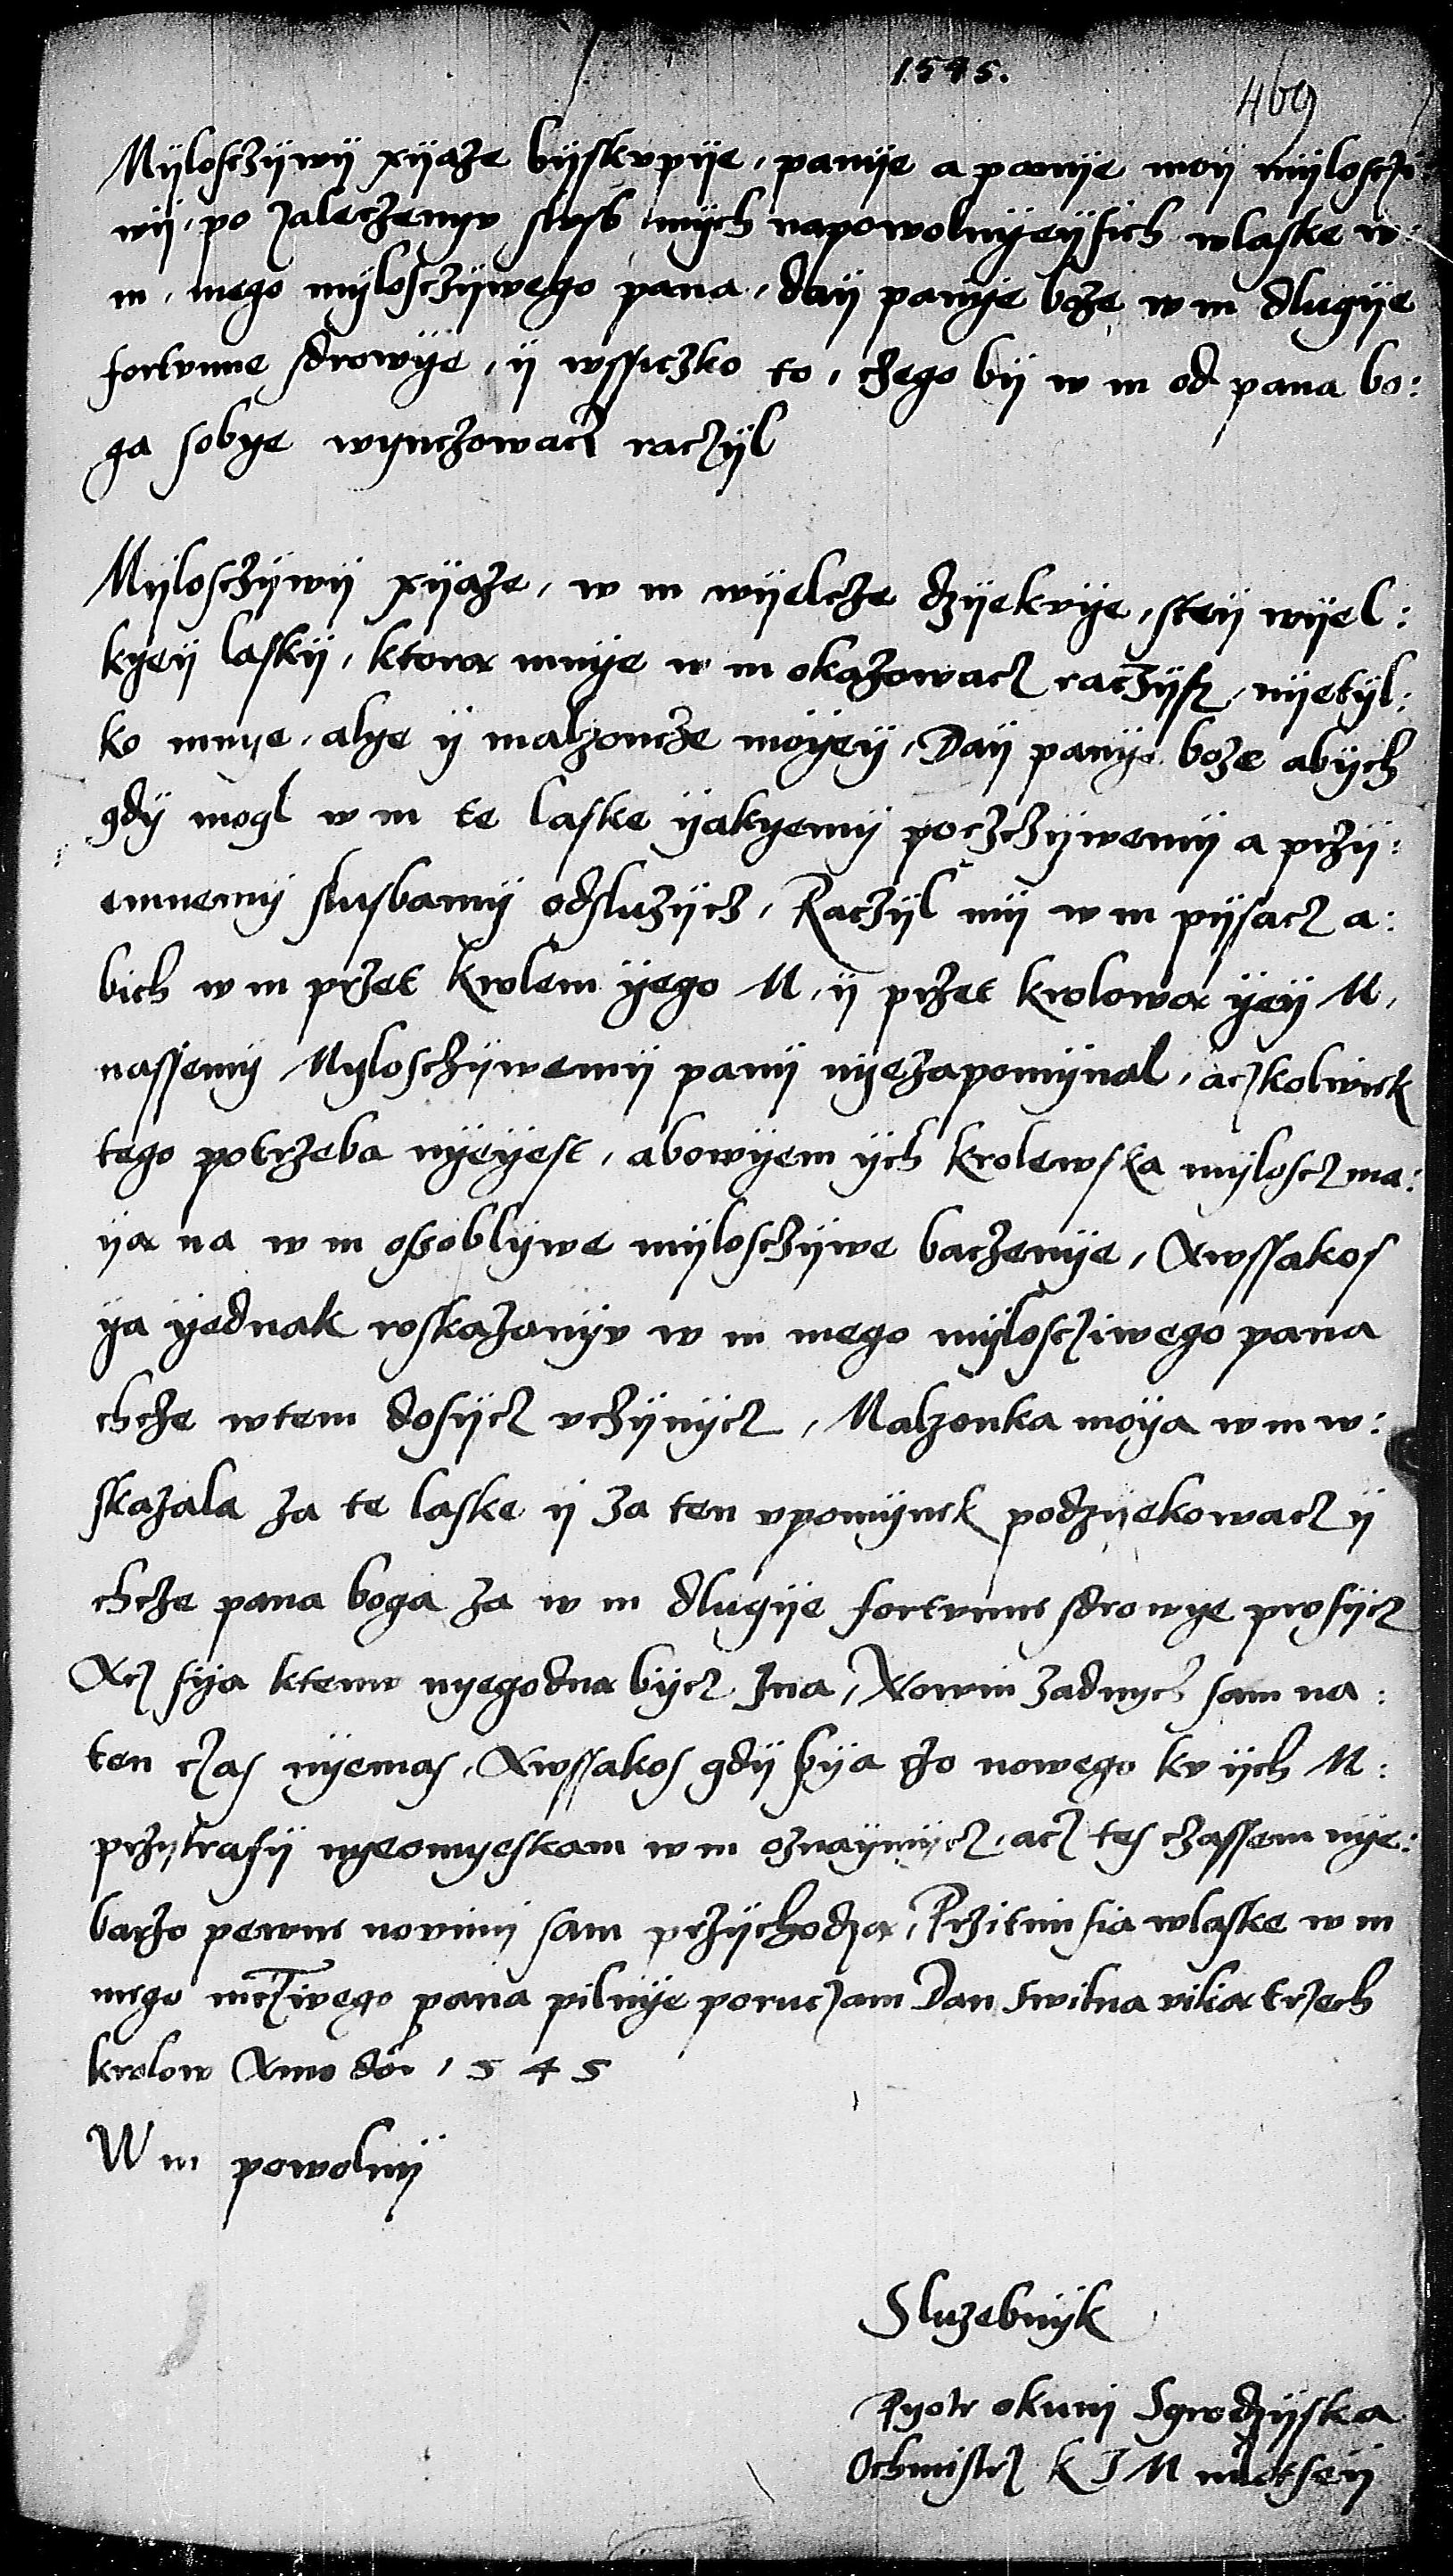 1545.
469
Mylosczywy xyaze byskvpye, panye a panye moy myloszi
wy, po zaleczenyv slvsb mych napowolnyeysich wlaske w:
m, mego mylosczywego pana, day panye boze w m dlugye
fortvnne sdrowye, y wssiczko to, czego by w m od pana bo:
ga sobye wynczowacz raczyl
Mylosczywy xyaze, w m wyelcze dzyekvye, stey wyel:
kyey lasky, ktora mnye w m okazowacz raczysz, nyetyl:
ko mnye, alye y malzoncze moyey, Day panye boze abych
gdy mogl w m te laske yakyemy poczczywemy a przy:
emnemy slusbamy odsluzycz, Raczyl my w m pysacz a:
bich w m przet krolem yego M, y przet krolowa yey M,
nassemy Mylosczywemy pany nyezapomynal, aczkolwiek
tego potrzeba nyeyest, abowyem ych krolewska myloscz ma:
ya na w m osoblywe mylosczywe baczenye, Awssakos
ya yednak roskazanyv w m mego mylosciwego pana
chcze wtem dosycz vczynycz, Malzonka moya w m w:
skazala za te laske y za ten vpomynek podzyekowacz y
chcze pana boga za w m dlugye fortvnne sdrowye prosycz
Acz sya ktemv nyegodna bycz zna, Nowin zadnych sam na:
ten czas nyemas, Awssakos gdy sya czo nowego kv ych M:
przytrafy nyeomyeskam w m oznaymycz, acz tes czassem nye:
barzo pewne noviny sam przychodza, Przitim sia wlaske w m
mego mcziwego pana pilnye poruczam Dan swilna vilia trzech
krolow Anno doi 1545
W m powolny
Sluzebnyk
Pyotr okuny Sgrodzyska
Ochmistrz K J M mlotsey